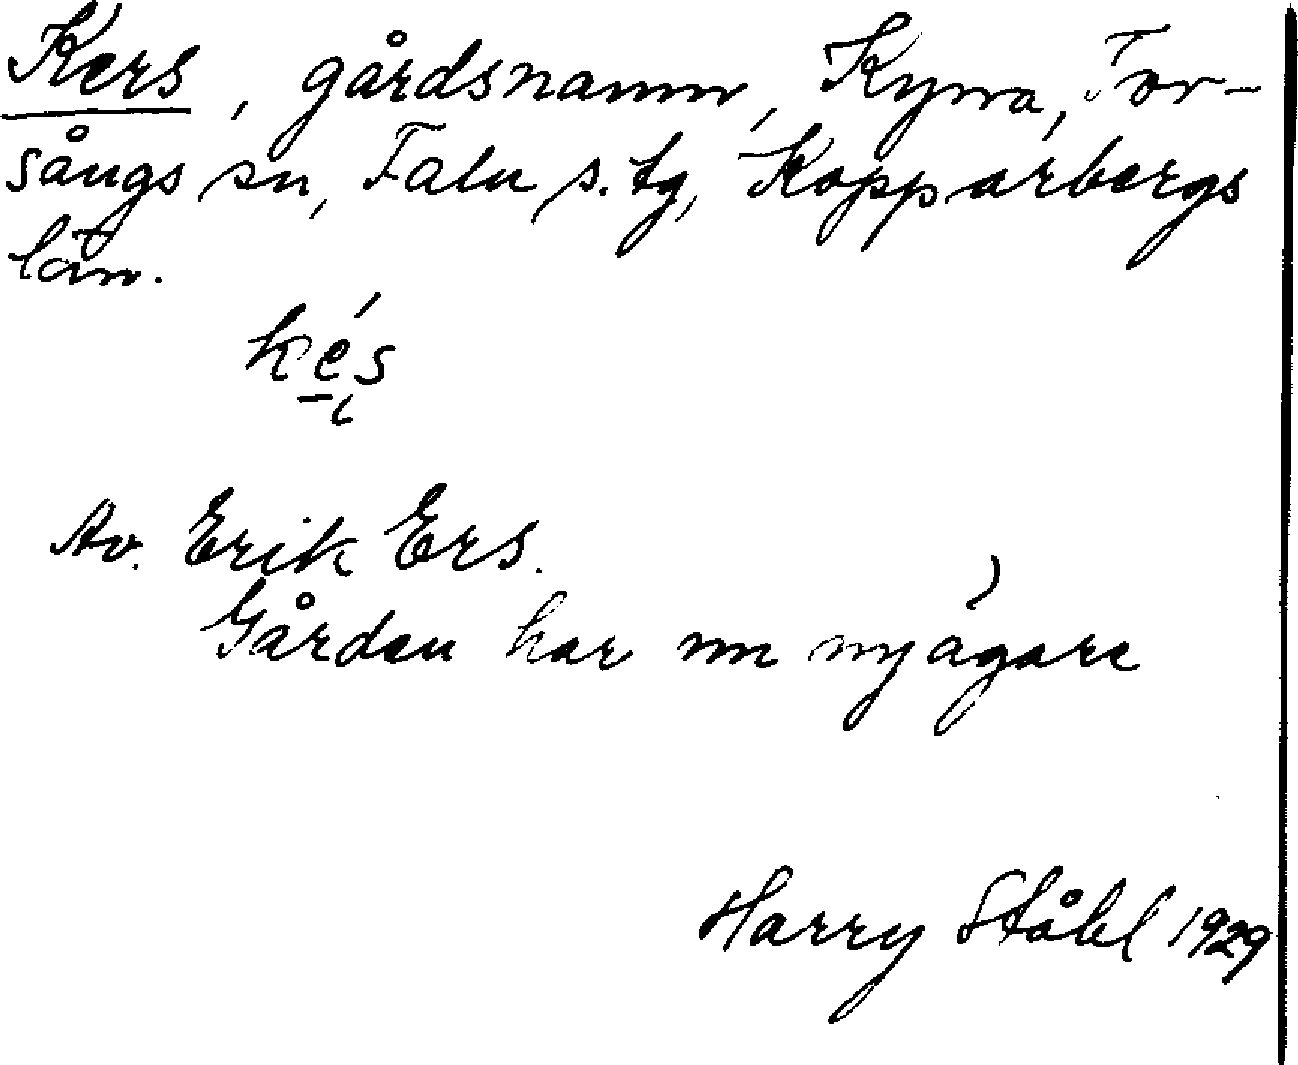 Kers, gårdsnamn, Kyna, Tor-
sångs sn, Falu s. tg, Kopparbergs
län.
kés
Av. Erik Ers.
Gården har nu ny ägare
Harry Ståhl 1929